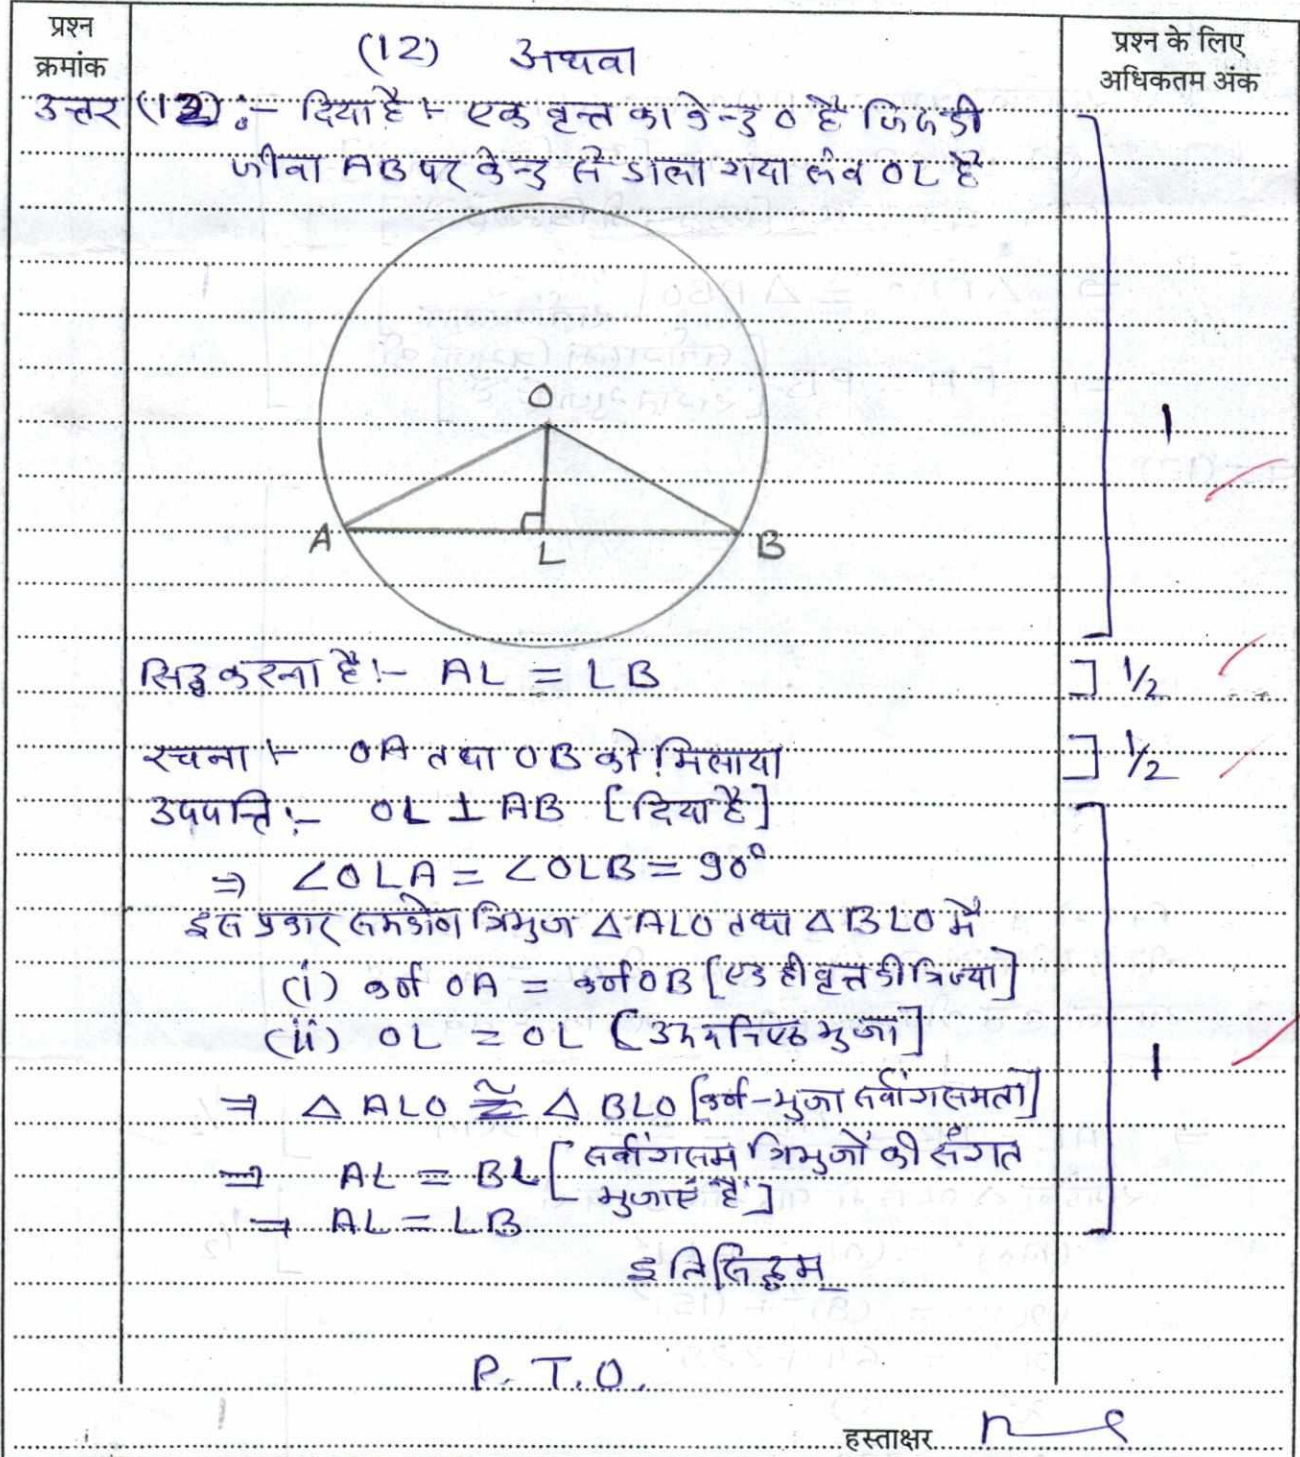 प्रश्न क्रमांक
(12) अथवा
प्रश्न के लिए अधिकतम अंक
उत्तर (12) :- दिया है :- एक वृत्त का केन्द्र O है जिसकी
जीवा AB पर केन्द्र से डाला गया लंब OL है
O
A
L
B
1
सिद्ध करना है :- AL = LB
1/2
रचना :- OA तथा OB को मिलाया
1/2
उपपत्ति :- OL ⊥ AB [दिया है]
⇒ ∠OLA = ∠OLB = 90°
इस प्रकार समकोण त्रिभुज △ALO तथा △BLO में
(i) कर्ण OA = कर्ण OB [एक ही वृत्त की त्रिज्या]
(ii) OL = OL [उभयनिष्ठ भुजा]
1
⇒ △ ALO ≅ △ BLO [कर्ण-भुजा सर्वांगसमता]
⇒ AL = BL [सर्वांगसम त्रिभुजों की संगत
भुजाएं हैं]
⇒ AL = LB
इतिसिद्धम्
P. T. O.
हस्ताक्षर